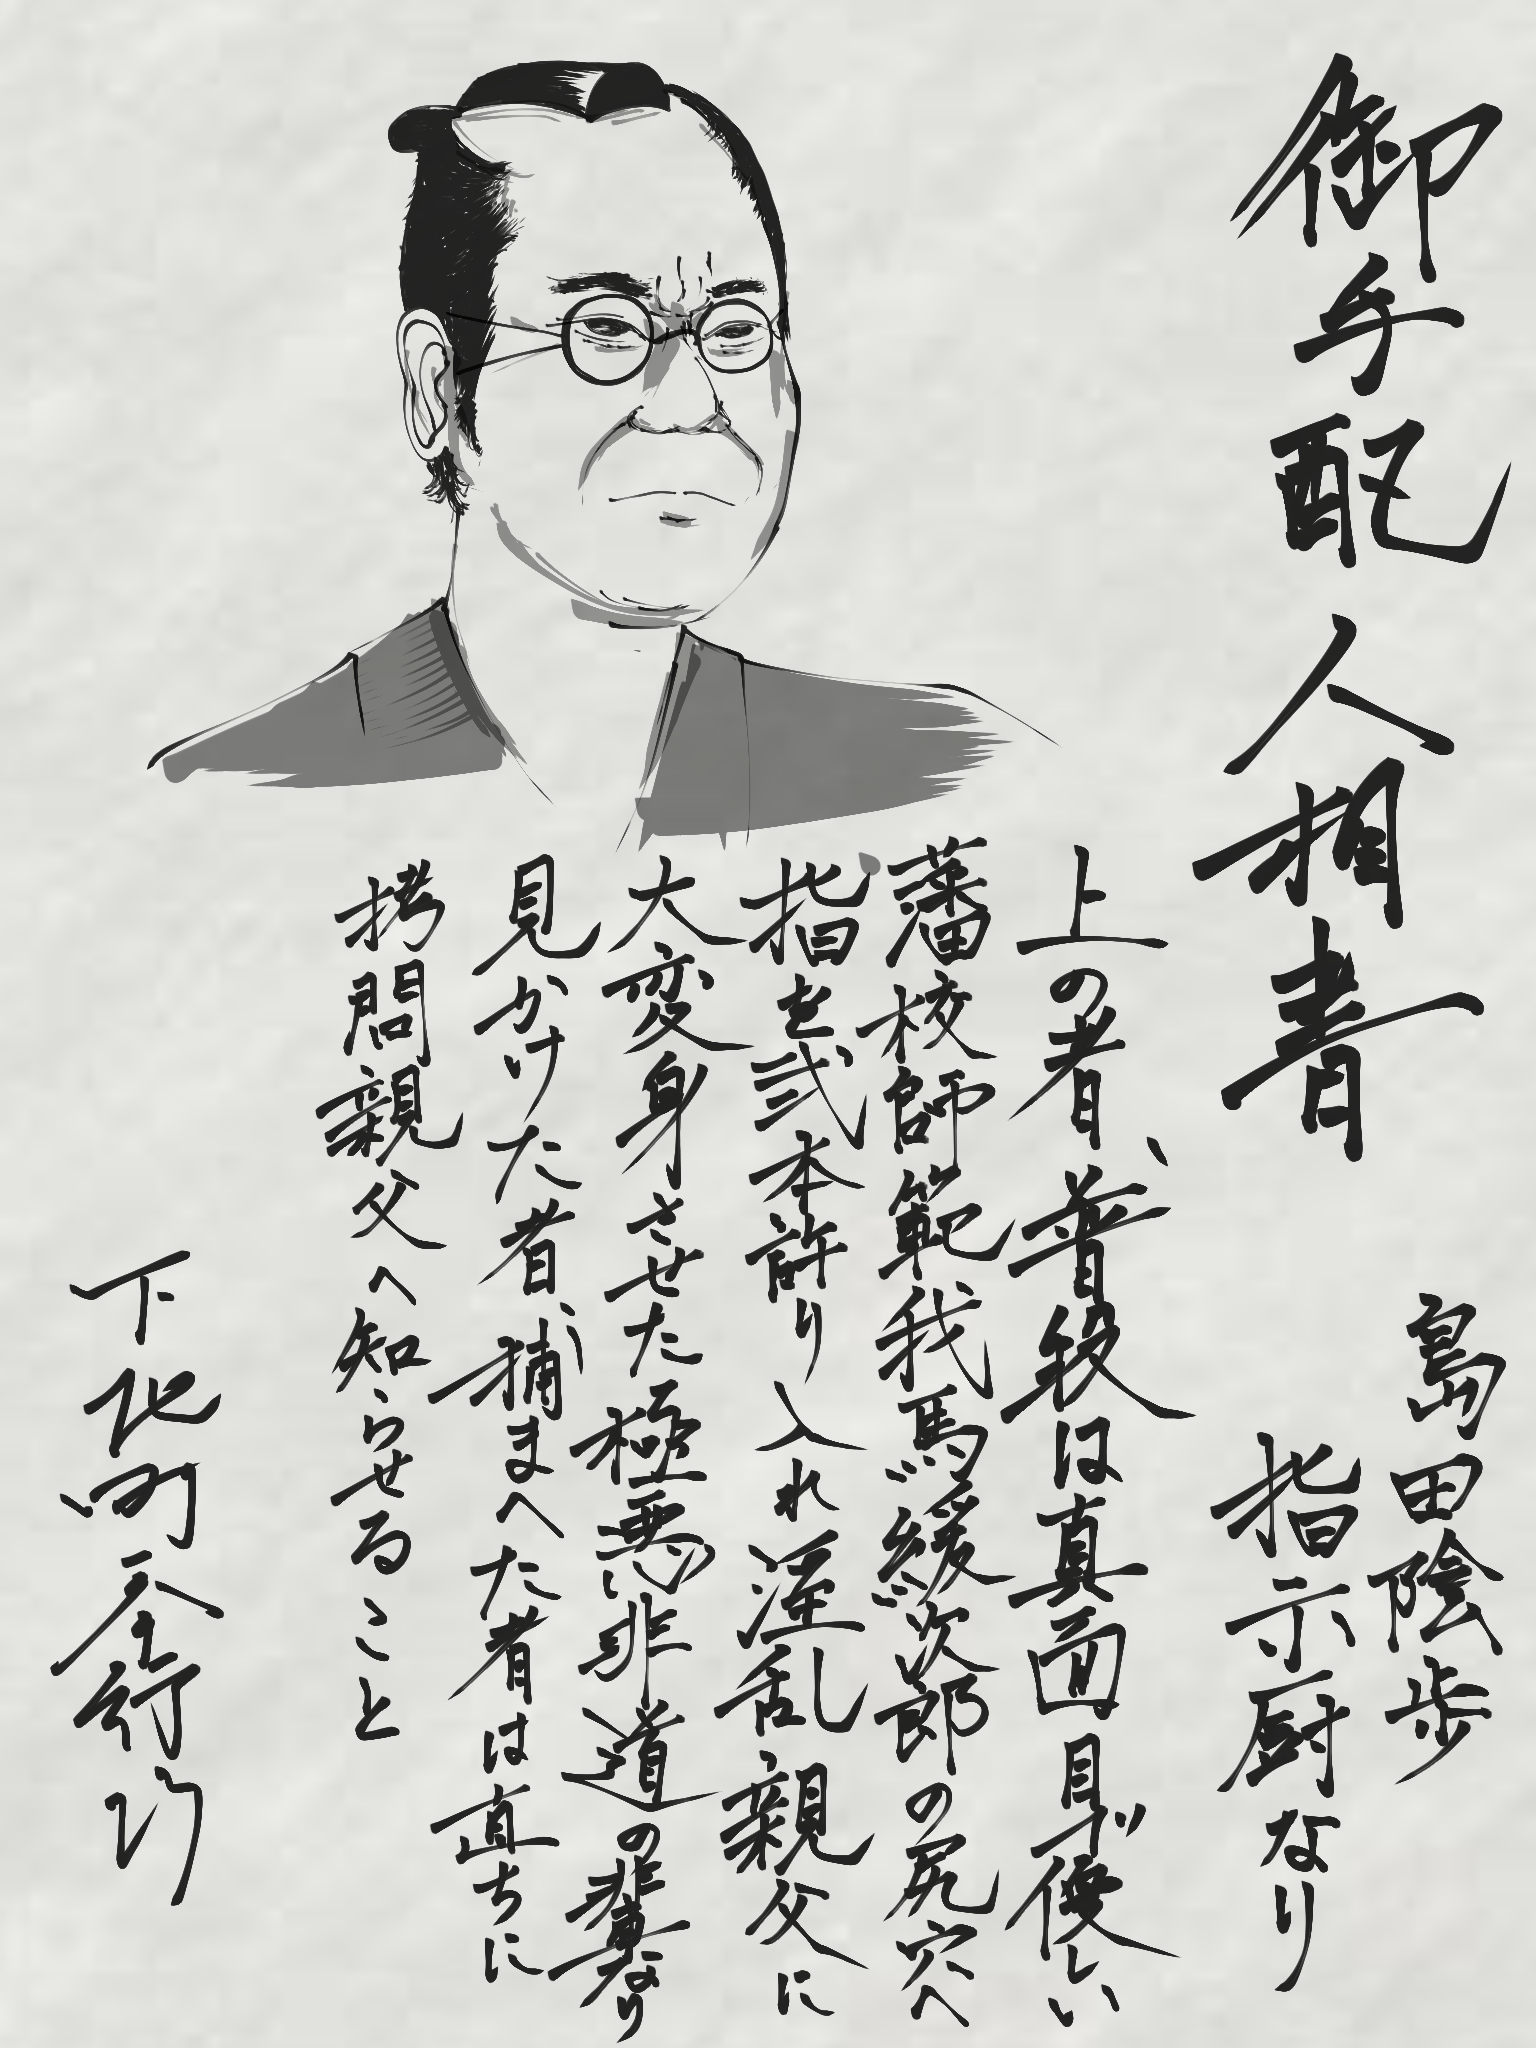 御手配人相書
島田陰歩
指示厨なり
上の者、普段は真面目で優しい
藩校師範我馬緩次郎の尻穴へ
指を弐本許り入れ淫乱親父に
大変身させた極悪非道の輩なり
見かけた者、捕まへた者は直ちに
拷問親父へ知らせること
下北町奉行所